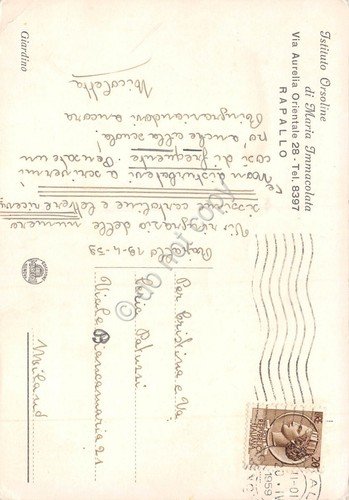 Istituto Orsoline
di Maria Immacolata
Via Aurelia Orientale 28 - Tel. 8397
RAPALLO
Giardino
Rapallo 19-4-59
Vi ringrazio delle numerose
cartoline e lettere
Non disturbatevi a scrivermi
così di frequente. Pensate un
po' anche alla scuola.
Ringraziandovi ancora
Nicoletta
Per Cristina e
Viale Biancamaria 21
Milano
do not copy
1959